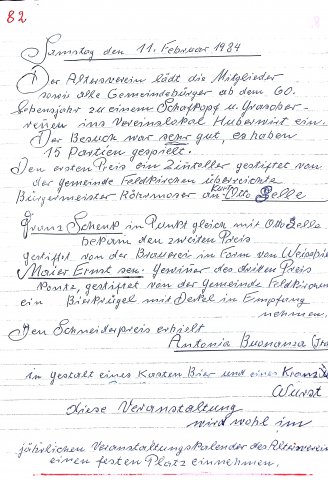 82
Samstag den 11. Februar 1984
Der Altersverein lädt die Mitglieder
sowie alle Gemeindebürger ab dem 60.
Lebensjahr zu einem Schafkopf u. Grasober-
rennen ins Vereinslokal Huberwirt ein.
Der Besuch war sehr gut, es haben
15 Partien gespielt.
Den ersten Preis ein Zinnteller gestiftet von
der Gemeinde Feldkirchen überreichte
Bürgermeister Röhrmoser an Otto Belle
Franz Schenk in Punkt gleich mit Otto Belle
bekam den zweiten Preis
gestiftet von der Brauerei in Form von
Maier Ernst sen. Gewinner des dritten Preis
konnte, gestiftet von der Gemeinde Feldkirchen
ein Bierkrügel mit Deckel in Empfang
nehmen.
Den Schneiderpreis erhielt
Antonia Buonanza
in gestalt eines Kasten Bier und eines Kranz
Wurst
Diese Veranstaltung
wird wohl im
jährlichen Veranstaltungskalender des Altersverein
einen festen Platz einnehmen.